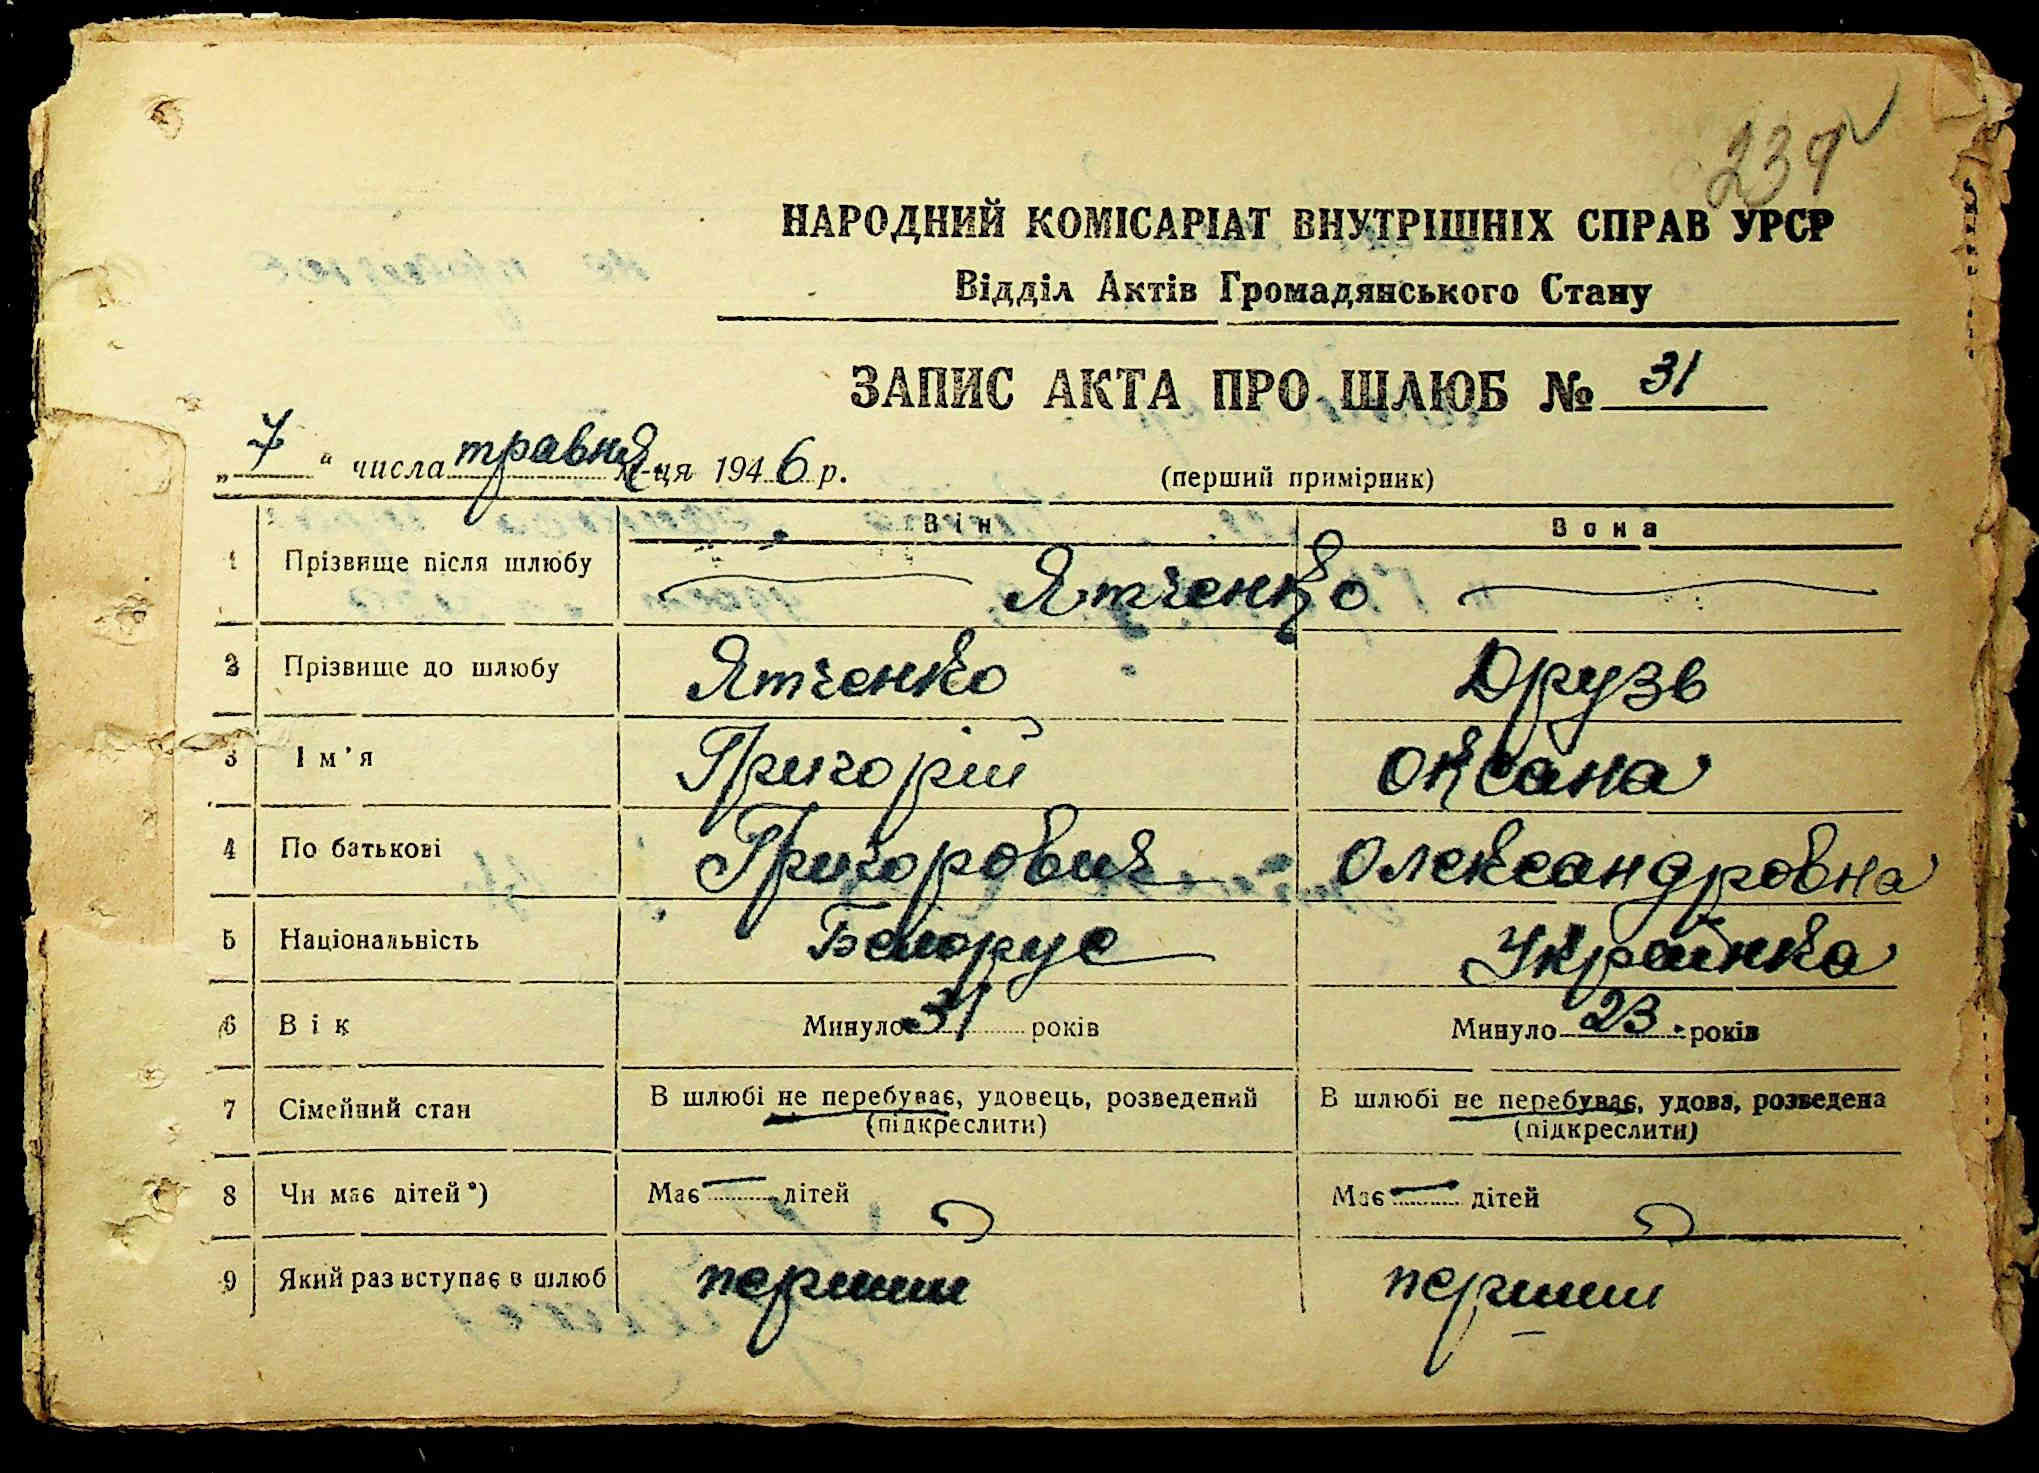 239
НАРОДНИЙ КОМІСАРІАТ ВНУТРІШНІХ СПРАВ УРСР
Відділ Актів Громадянського Стану
ЗАПИС АКТА ПРО ШЛЮБ № 31
„7“ числа травня м-ця 1946 р.
(перший примірник)
Він Вона
1 Прізвище після шлюбу Ятченко
2 Прізвище до шлюбу Ятченко Друзь
3 Ім'я Григорій Оксана
4 По батькові Григорович Олександровна
5 Національність Белорус Українка
6 Вік Минуло 31 років Минуло 23 років
7 Сімейний стан В шлюбі не перебуває, удовець, розведений В шлюбі не перебуває, удова, розведена
(підкреслити) (підкреслити)
8 Чи має дітей*) Має — дітей Має — дітей
9 Який раз вступає в шлюб перший перший